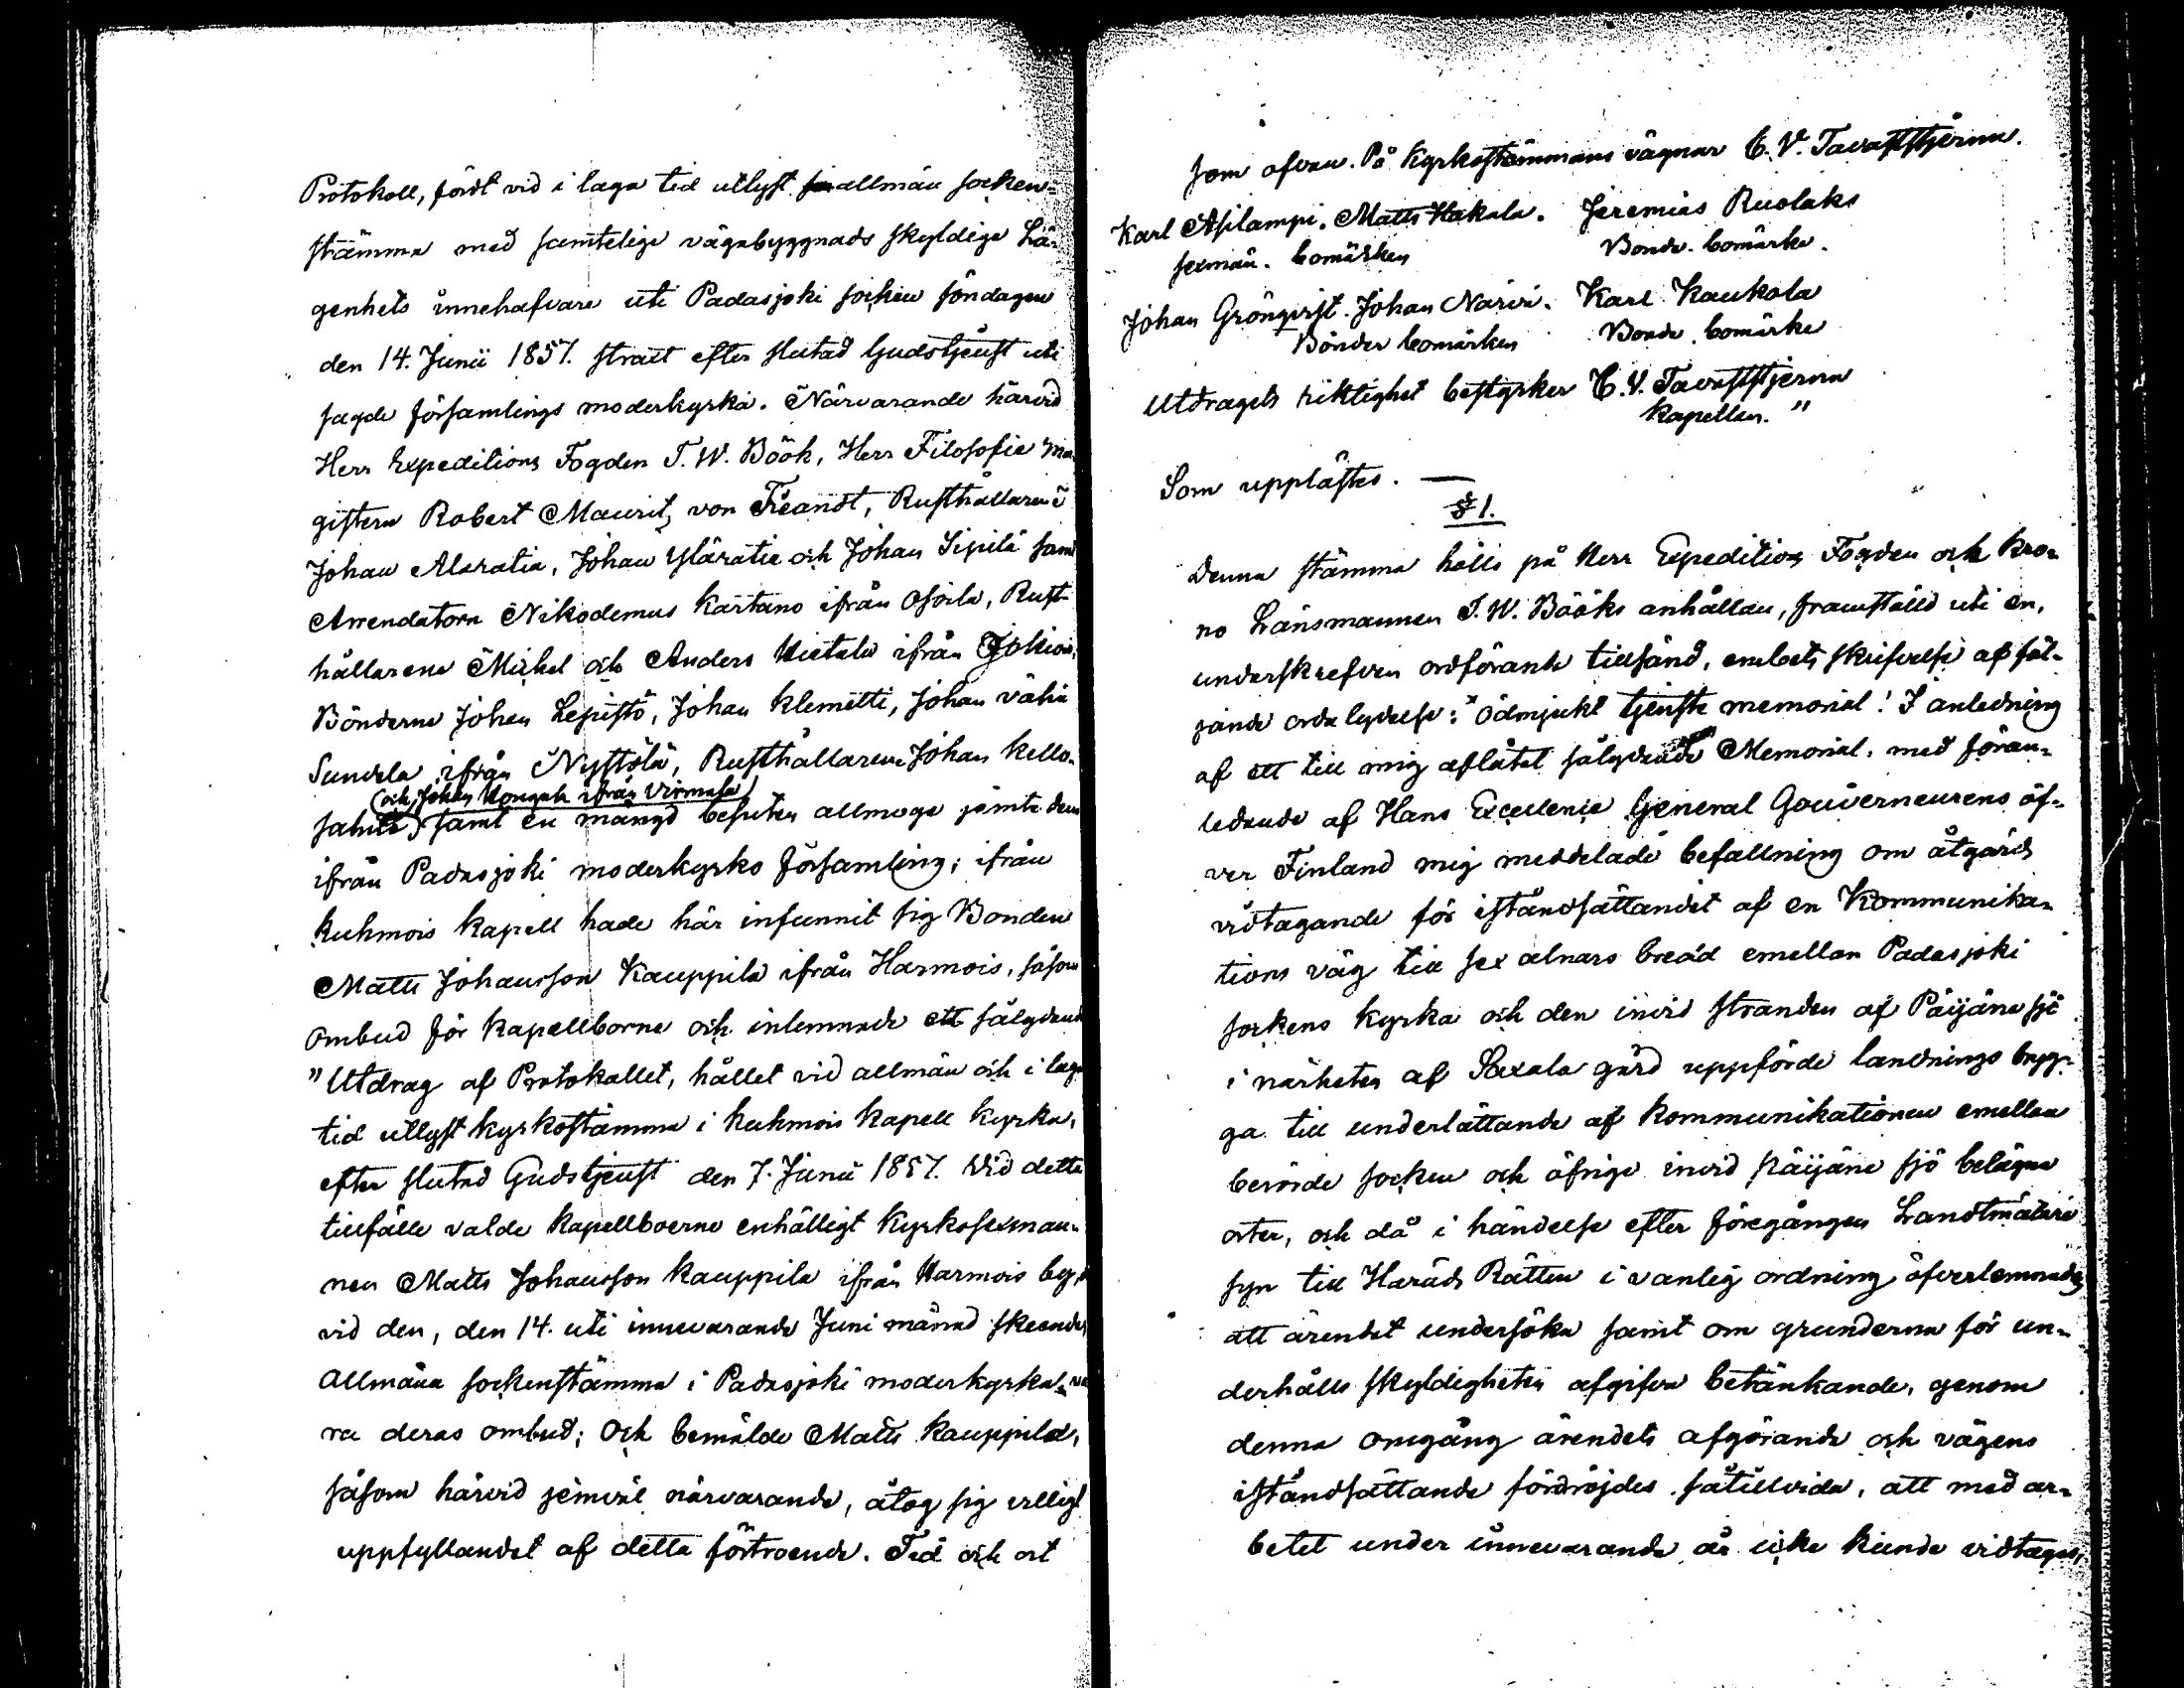 Protokoll, fördt vid i laga tid utlyst allmän socken-
stämma med samtelige vägabyggnads skyldige Lä-
genhets innehafvare uti Padasjoki socken söndagen
den 14. Junii 1857. strait efter slutad Gudstjenst uti
sagde församlings moderkyrka. Närvarande härvid
Herr Expeditions Fogden T. W. Böök, Herr Filosofie Ma-
gistern Robert Maurit von Fieandt, Rusthållarene
Johan Alaratia, Johan Yläratie och Johan Sipilä samt
Arrendatorn Nikodemus Kartano ifrån Osoila, Rust-
hållarene Mickel och Anders Uotala ifrån Jokiois,
Bönderne Johan Lepistö, Johan Klemetti, Johan Vähä
Sundela ifrån Nyystölä, Rusthållarene Johan Kello-
(och Johan Uongola ifrån Virmaila)
salmi samt en mängd besuten allmoge jämte dem
ifrån Padasjoki moderkyrko församling; ifrån
Kuhmois Kapell hade här infunnit sig Bonden
Matts Johansson Kauppila ifrån Harmois, såsom
ombud för Kapellborne och inlemnade ett sålydande
"Utdrag af Protokollet, hållet vid allmän och i laga
tid utlyst kyrkostämma i Kuhmois Kapell Kyrka,
efter slutad Gudstjenst den 7. Junii 1857. Vid detta
tillfälle valde Kapellboerne enhälligt Kyrkosexman-
nen Matts Johansson Kauppila ifrån Harmois by,
vid den, den 14. uti innevarande Juni månad skeende
allmäna sockenstämma i Padasjoki moderkyrka, va-
ra deras ombud; Och bemälde Matts Kauppila,
såsom härvid jemväl närvarande, åtog sig villigt
uppfyllandet af detta förtroende. Tid och ort
som ofvan. På Kyrkostämmans vägnar C. V. Tavaststjerna.
Karl Asilampi. Matts Hakala. Jeremias Ruolaks
sexmän. bomärken Bonde. bomärke.
Johan Grönqvist. Johan Narvi. Karl Kaukola
Bönder bomärken Bonde. bomärke
Utdragets riktighet bestyrker C. V. Tavaststjerna
Kapellan."
Som upplästes. —
§ 1.
Denna stämma hålls på Herr Expeditions Fogden och Kro-
no Länsmannen T. W. Bööks anhållan, framställd uti en,
underskrefven ordförande tillsänd, embets skrifvelse af föl-
jande ordalydelse: "Ödmjukt tjenste memorial! I anledning
af ett till mig aflåtet sålydande Memorial, med föran-
ledande af Hans Excellence General Gouverneurens öf-
ver Finland mig meddelade befallning om åtgärds
vidtagande för iståndsättandet af en Kommunika-
tions väg till sex alnars bredd emellan Padasjoki
sockens Kyrka och den invid stranden af Päijäne sjö
i närheten af Saxala gård uppförde landnings bryg-
ga till underlättande af kommunikationen emellan
berörde socken och öfrige invid Päijäne sjö belägna
orter, och då i händelse efter föregången Landtmäteri
syn till Härads Rätten i vanlig ordning öfverlemnades
att ärendet undersöka samt om grunderna för un-
derhålls skyldigheten afgifva betänkande, genom
denna omgång ärendets afgörande och vägens
iståndsättande fördröjdes såtillvida, att med ar-
betet under innevarande år icke kunde vidtagas,